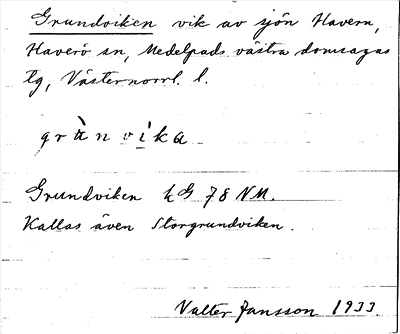 Grundviken vik av sjön Havern,
Haverö sn, Medelpads västra domsagas
tg, Västernorrl. l.
grùnvìka
Grundviken hG 78 NM.
Kallas även Storgrundviken.
Valter Jansson 1933.